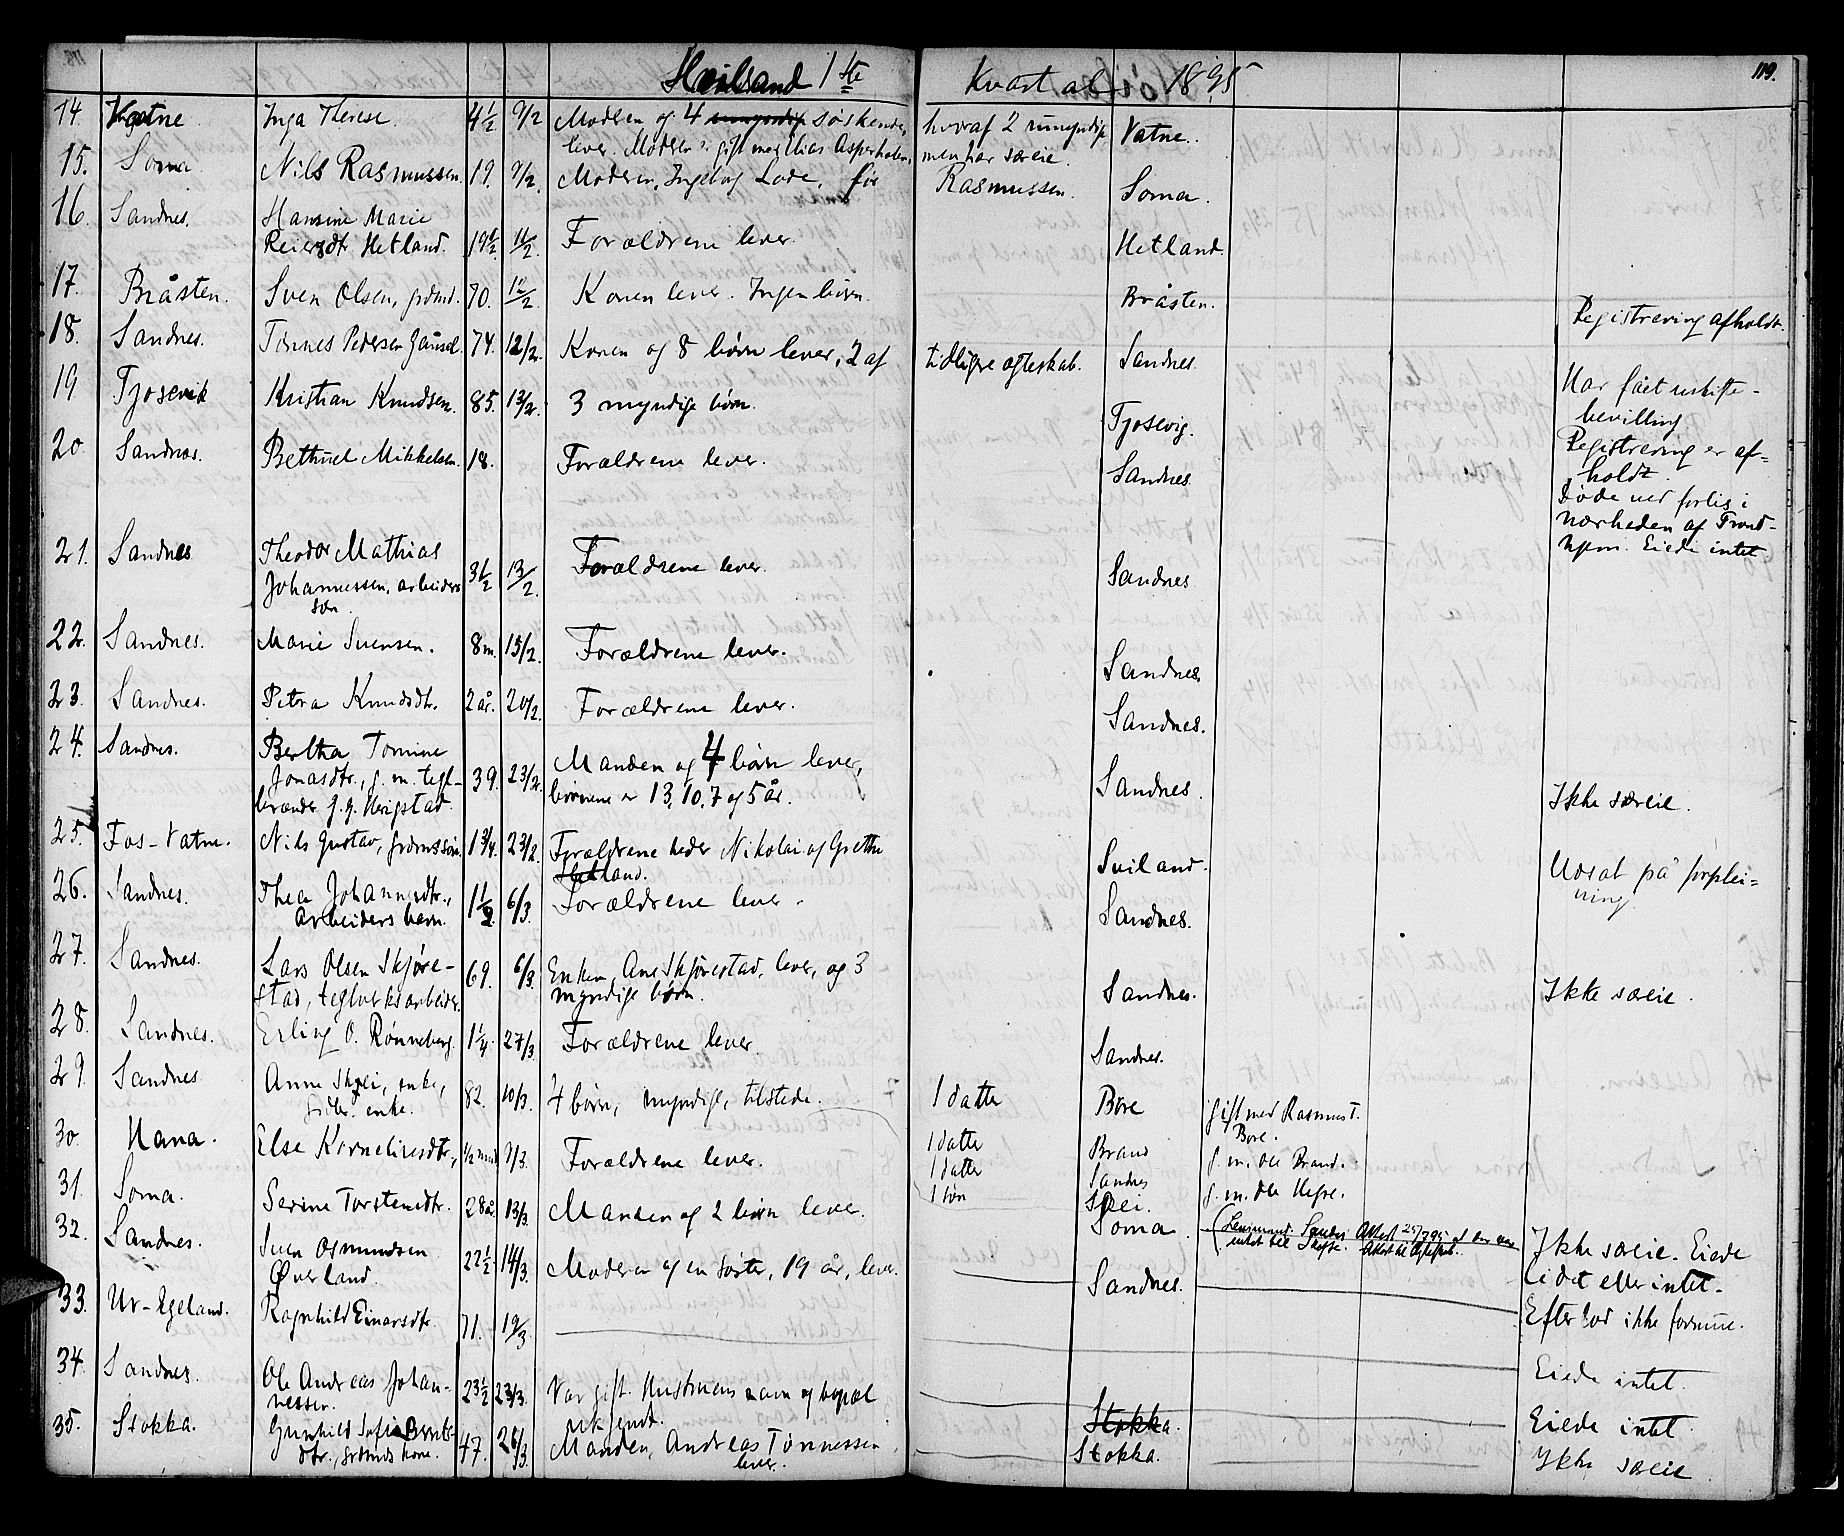 Høiland 1ste Kvartal 1895
119.
14. Vatne Inga Therese 4½ 9/2 Moderen og 4 søskende, hvoraf 2 umyndige Vatne.
lever. Moderen er gift men har særeie.
15. Soma Nils Rasmussen. 19. 9/2. Moderen, Ingeborg Lode, før Rasmussen. Soma.
16. Sandnes. Hansine Marie
Reiersdtr Hetland. 19½ 11/2. Forældrene lever. Hetland.
17. Bråsten. Sven Olsen, grdmd. 70. 12/2 Konen lever. Ingen børn. Bråsten. Registrering afholdt.
18. Sandnes. Tønnes Pedersen Gausel. 74. 12/2. Konen og 8 børn lever, 2 af tidligere ægteskab. Sandnes. Har fået uskifte-
bevilling.
19 Tjosevik Kristian Knudsen. 85. 13/2. 3 myndige børn. Tjosevig. Registrering er af=
holdt.
20. Sandnes. Bethuel Mikkelsen. 18. Forældrene lever. Sandnes. Døde ved forlis i
nærheden af Trond-
hjem. Eiede intet.
21. Sandnes Theodor Mathias
Johannessen, arbeiders
søn. 3½ 13/2. Forældrene lever. Sandnes.
22. Sandnes. Marie Svensen. 8 m. 15/2. Forældrene lever. Sandnes.
23. Sandnes. Petra Knudsdtr. 2 år. 20/2. Forældrene lever. Sandnes.
24. Sandnes. Bertha Tomine
Jonasdtr., g. m. tegl-
brænder J. J. Herigstad. 39. 23/2. Manden og 4 børn lever,
børnene er 13, 10, 7 og 5 år. Sandnes. Ikke særeie.
25. Fos-Vatne. Nils Gustav, grdmssøn. 1¾. 23/2. Forældrene heder Nikolai og Grethe
Hetland. Sviland. Udsat på forplei=
ning.
26. Sandnes. Thea Johannesdtr.,
Arbeiders barn. 1½. 6/3. Forældrene lever. Sandnes.
27. Sandnes. Lars Olsen Skjøre-
stad, teglverksarbeider. 69. 6/3. Enken, Ane Skjørestad, lever, og 3
myndige børn. Sandnes. Ikke særeie.
28. Sandnes. Erling O. Rønneberg. 1¼. 27/3. Forældrene lever. Sandnes.
29. Sandnes Anne Skjei, enke,
enke. 82. 10/3. 4 børn, myndige, tilstede. 1 datter Bore gift med Rasmus T.
Bore.
1 datter Brand g. m. Ole Brand.
1 datter Sandnes g. m. Ole Hegre.
1 søn Skjei.
30. Hana. Else Korneliusdtr., ½ mnd 9/3. Forældrene lever.
31. Soma. Serine Torstensdtr. 28 år. 13/3. Manden og 2 børn lever. Soma (Lensmand Sandnes Attest 25/7 99 at der var
intet til Skifte. Attest til Ægteskab. Ikke særeie. Eiede
lidet eller intet.
32. Sandnes. Sven Osmundsen
Øverland. 22½. 14/3. Moderen og en søster, 19 år, lever. Sandnes. Efterlod ikke formue.
33. Ur-Egeland. Ragnhild Einarsdtr. 71. 19/3. Eiede intet.
34. Sandnes. Ole Andreas Johan-
nessen. 23½ 23/3. Var gift. Hustruens navn og bopæl
ukjendt. Stokka. Eiede intet.
35. Stokka. Gunhild Sofie Bernts-
dtr., grdmds kone. 47. 26/3. Manden, Andreas Tønnessen,
lever. Stokka. Ikke særeie